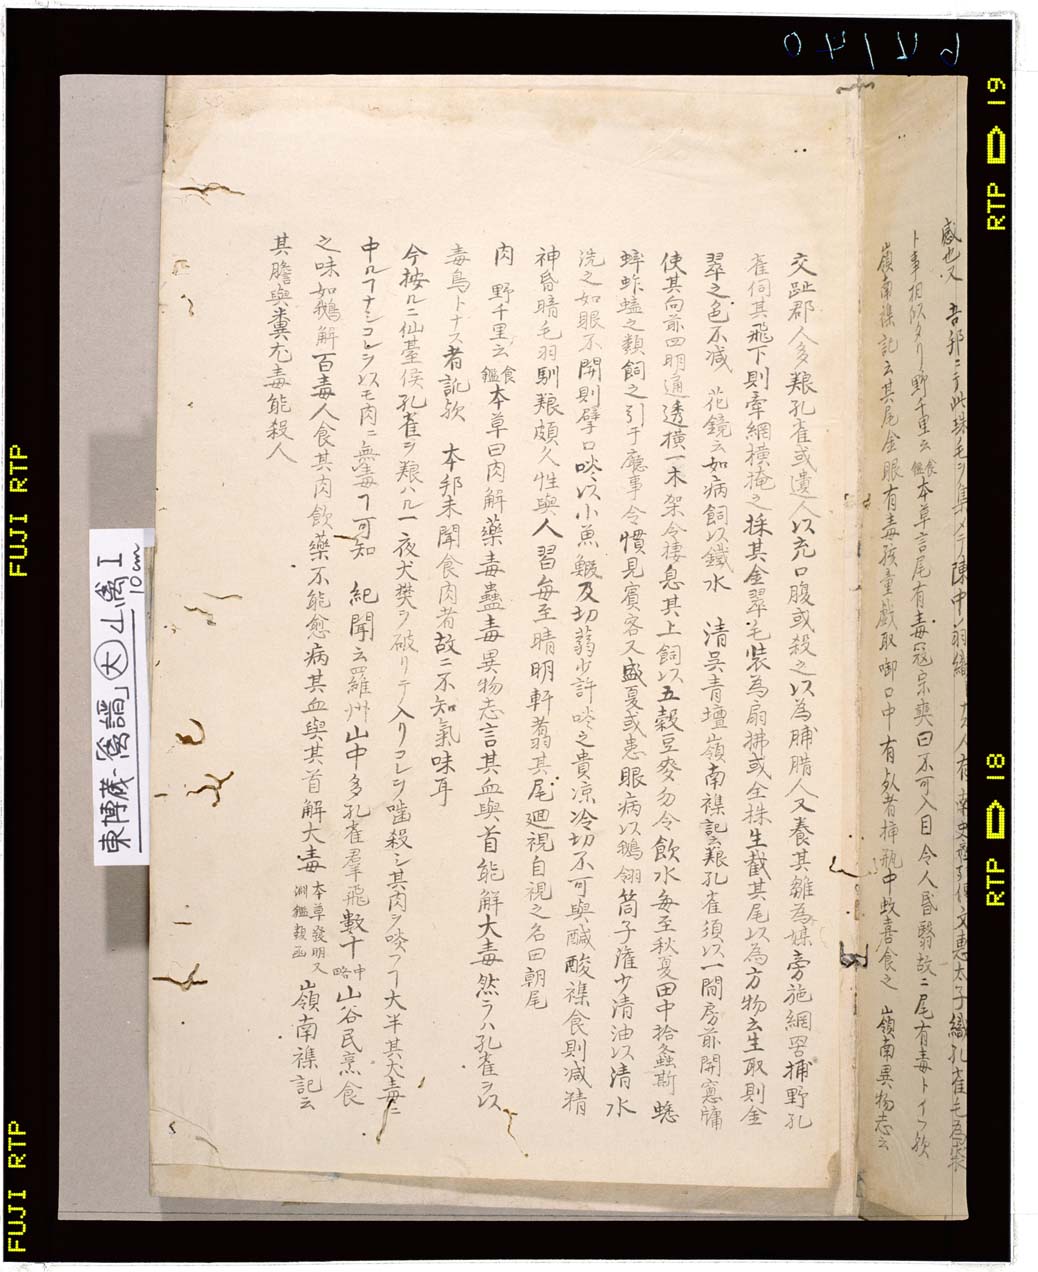 感也又 吾邦ニテ此珠毛ヲ集メテ陳中ノ羽織 ナス人有 南史 文惠太子織孔雀毛為裘
ト事相似タリ野千里云食鑑本草言尾有毒冦宗奭曰不可入目令人昏翳故ニ尾有毒トイフ欤
嶺南襍記云其尾金眼有毒孩童戲取啣口中有死者挿瓶中蚊喜食之 嶺南異物志云
交趾郡人多䬶孔雀或遺人以充口腹或殺之以為脯腊人又養其雛為媒旁施網罟捕野孔
雀伺其飛下則牽網橫掩之採其金翠毛裝為扇拂或全株生截其尾以為方物云生取則金
翠之色不減 花鏡云如病飼以鐵水 清呉青壇嶺南襍記云䬶孔雀須以一間房前開窓牖
使其向前四明通透橫一木架令棲息其上飼以五穀豆麥勿令飲水每至秋夏田中拾螽斯蟋
蟀蚱蜢之類飼之引于廳事令慣見賓客又盛夏或患眼病以鵝翎筒子灌少清油以清水
洗之如眼不開則擘口啖以小魚蝦及切蒻少許啖之貴凉冷切不可與醎酸襍食則減精
神昏暗毛羽馴䬶頗久性與人習每至晴明軒翥其尾廻視自視之名曰朝尾
肉 野千里云食鑑本草曰肉解藥毒蠱毒異物志言其血與首能解大毒然ラハ孔雀ヲ以
毒鳥トナス者訛欤 本邦未聞食肉者故ニ不知氣味耳
今按ルニ仙臺侯孔雀ヲ䬶ハル一夜犬樊ヲ破リテ入リコレヲ嚙殺シ其肉ヲ啖フヿ大半其犬毒ニ
中ルヿナシコレヲ以モ肉ニ無毒ヿ可知 紀聞云羅州山中多孔雀羣飛數十中略山谷民烹食
之味如鵝解百毒人食其肉飲藥不能愈病其血與其首解大毒本草發明又淵鑑類函嶺南襍記云
其膽與糞尤毒能殺人
東博蔵-「禽譜」大 小禽 I
10cm
FUJI RTP
FUJI RTP
RTP 19
RTP 18